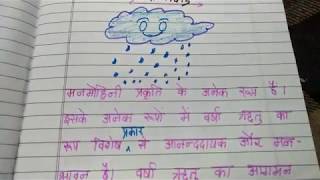 मनमोहिनी प्रकृति के अनेक रूप हैं।
इसके अनेक रूपों में वर्षा ऋतु का
प्रकार
रूप विशेष से आनन्ददायक और मन-
भावन है। वर्षा ऋतु का आगमन